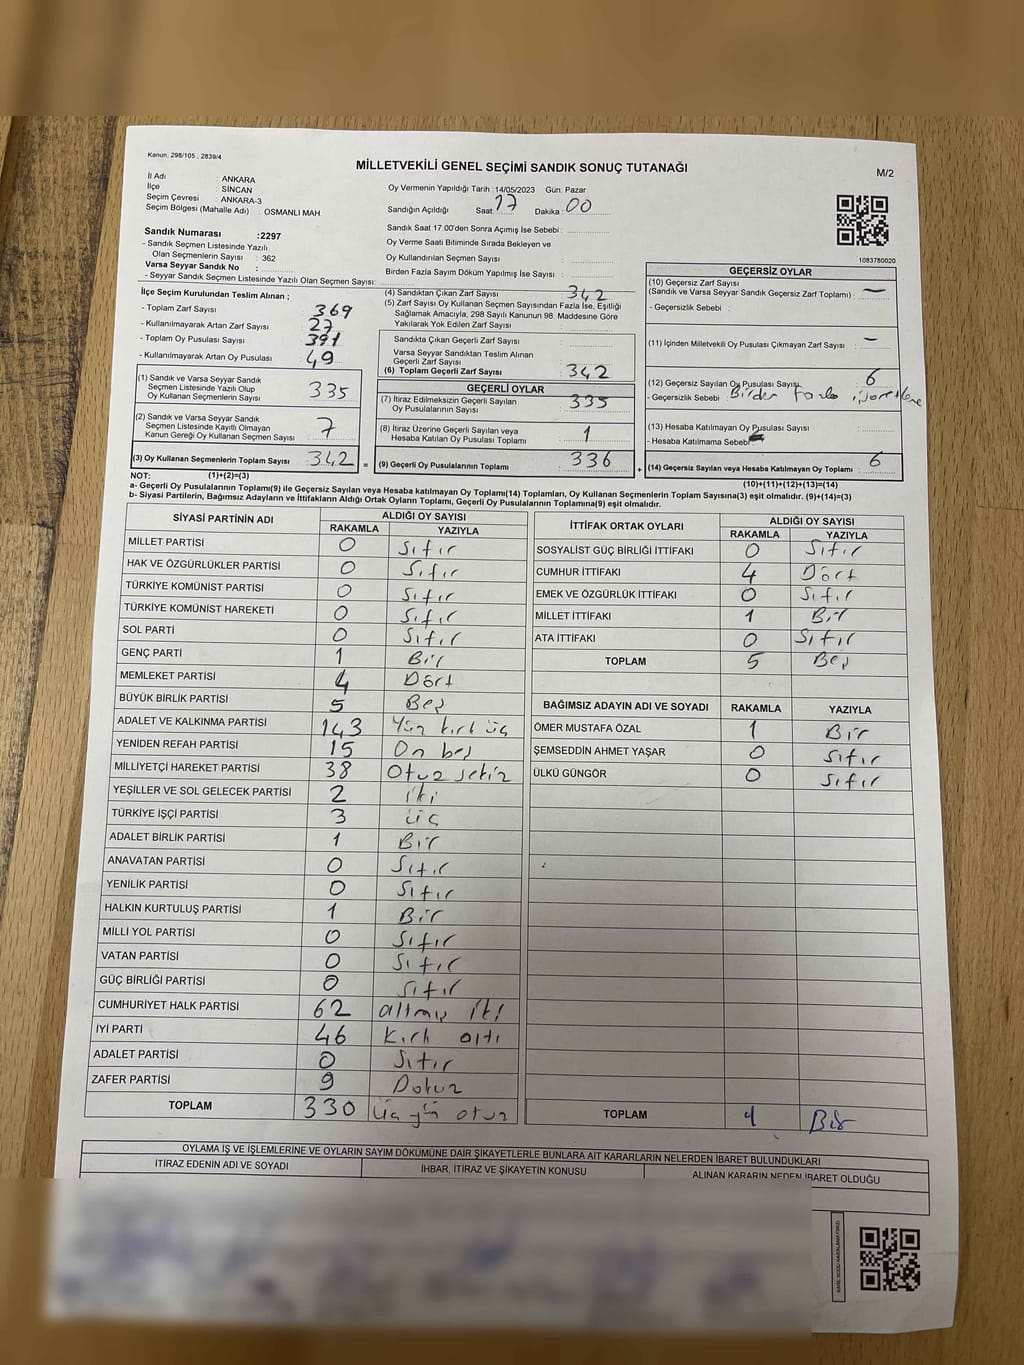 Kanun; 298/105 , 2839/4
MİLLETVEKİLİ GENEL SEÇİMİ SANDIK SONUÇ TUTANAĞI
M/2
İl Adı : ANKARA
İlçe : SİNCAN
Seçim Çevresi : ANKARA-3
Seçim Bölgesi (Mahalle Adı) : OSMANLI MAH.
Oy Vermenin Yapıldığı Tarih : 14/05/2023 Gün: Pazar
Sandığın Açıldığı Saat: 17 Dakika: 00
Sandık Saat 17.00'den Sonra Açımış İse Sebebi :
Oy Verme Saati Bitiminde Sırada Bekleyen ve
Oy Kullandırılan Seçmen Sayısı :
Birden Fazla Sayım Döküm Yapılmış İse Sayısı :
1083780020
Sandık Numarası :2297
- Sandık Seçmen Listesinde Yazılı
Olan Seçmenlerin Sayısı : 362
Varsa Seyyar Sandık No :
- Seyyar Sandık Seçmen Listesinde Yazılı Olan Seçmen Sayısı:
İlçe Seçim Kurulundan Teslim Alınan ;
- Toplam Zarf Sayısı : 369
- Kullanılmayarak Artan Zarf Sayısı : 27
- Toplam Oy Pusulası Sayısı : 391
- Kullanılmayarak Artan Oy Pusulası : 49
(1) Sandık ve Varsa Seyyar Sandık
Seçmen Listesinde Yazılı Olup
Oy Kullanan Seçmenlerin Sayısı : 335
(2) Sandık ve Varsa Seyyar Sandık
Seçmen Listesinde Kayıtlı Olmayan
Kanun Gereği Oy Kullanan Seçmen Sayısı : 7
(3) Oy Kullanan Seçmenlerin Toplam Sayısı : 342
(1)+(2)=(3)
(4) Sandıktan Çıkan Zarf Sayısı : 342
(5) Zarf Sayısı Oy Kullanan Seçmen Sayısından Fazla İse, Eşitliği
Sağlamak Amacıyla, 298 Sayılı Kanunun 98. Maddesine Göre
Yakılarak Yok Edilen Zarf Sayısı :
Sandıkta Çıkan Geçerli Zarf Sayısı :
Varsa Seyyar Sandıktan Teslim Alınan
Geçerli Zarf Sayısı :
(6) Toplam Geçerli Zarf Sayısı : 342
GEÇERLİ OYLAR
(7) İtiraz Edilmeksizin Geçerli Sayılan
Oy Pusulalarının Sayısı : 335
(8) İtiraz Üzerine Geçerli Sayılan veya
Hesaba Katılan Oy Pusulası Toplamı : 1
= (9) Geçerli Oy Pusulalarının Toplamı : 336 +
GEÇERSİZ OYLAR
(10) Geçersiz Zarf Sayısı
(Sandık ve Varsa Seyyar Sandık Geçersiz Zarf Toplamı) : —
- Geçersizlik Sebebi :
(11) İçinden Milletvekili Oy Pusulası Çıkmayan Zarf Sayısı : —
(12) Geçersiz Sayılan Oy Pusulası Sayısı : 6
- Geçersizlik Sebebi : Birden fazla
(13) Hesaba Katılmayan Oy Pusulası Sayısı :
- Hesaba Katılmama Sebebi
(14) Geçersiz Sayılan veya Hesaba Katılmayan Oy Toplamı : 6
(10)+(11)+(12)+(13)=(14)
NOT:
a- Geçerli Oy Pusulalarının Toplamı(9) ile Geçersiz Sayılan veya Hesaba katılmayan Oy Toplamı(14) Toplamları, Oy Kullanan Seçmenlerin Toplam Sayısına(3) eşit olmalıdır. (9)+(14)=(3)
b- Siyasi Partilerin, Bağımsız Adayların ve İttifakların Aldığı Ortak Oyların Toplamı, Geçerli Oy Pusulalarının Toplamına(9) eşit olmalıdır.
SİYASİ PARTİNİN ADI ALDIĞI OY SAYISI
RAKAMLA YAZIYLA
MİLLET PARTİSİ 0 Sıfır
HAK VE ÖZGÜRLÜKLER PARTİSİ 0 Sıfır
TÜRKİYE KOMÜNİST PARTİSİ 0 Sıfır
TÜRKİYE KOMÜNİST HAREKETİ 0 Sıfır
SOL PARTİ 0 Sıfır
GENÇ PARTİ 1 Bir
MEMLEKET PARTİSİ 4 Dört
BÜYÜK BİRLİK PARTİSİ 5 Beş
ADALET VE KALKINMA PARTİSİ 143 Yüz kırk üç
YENİDEN REFAH PARTİSİ 15 On beş
MİLLİYETÇİ HAREKET PARTİSİ 38 Otuz sekiz
YEŞİLLER VE SOL GELECEK PARTİSİ 2 iki
TÜRKİYE İŞÇİ PARTİSİ 3 üç
ADALET BİRLİK PARTİSİ 1 Bir
ANAVATAN PARTİSİ 0 Sıfır
YENİLİK PARTİSİ 0 Sıfır
HALKIN KURTULUŞ PARTİSİ 1 Bir
MİLLİ YOL PARTİSİ 0 Sıfır
VATAN PARTİSİ 0 Sıfır
GÜÇ BİRLİĞİ PARTİSİ 0 Sıfır
CUMHURİYET HALK PARTİSİ 62 altmış iki
İYİ PARTİ 46 Kırk altı
ADALET PARTİSİ 0 Sıfır
ZAFER PARTİSİ 9 Dokuz
TOPLAM 330 üç yüz otuz
İTTİFAK ORTAK OYLARI ALDIĞI OY SAYISI
RAKAMLA YAZIYLA
SOSYALİST GÜÇ BİRLİĞİ İTTİFAKI 0 Sıfır
CUMHUR İTTİFAKI 4 Dört
EMEK VE ÖZGÜRLÜK İTTİFAKI 0 Sıfır
MİLLET İTTİFAKI 1 Bir
ATA İTTİFAKI 0 Sıfır
TOPLAM 5 Beş
BAĞIMSIZ ADAYIN ADI VE SOYADI RAKAMLA YAZIYLA
ÖMER MUSTAFA ÖZAL 1 Bir
ŞEMSEDDİN AHMET YAŞAR 0 Sıfır
ÜLKÜ GÜNGÖR 0 Sıfır
TOPLAM 1 Bir
OYLAMA İŞ VE İŞLEMLERİNE VE OYLARIN SAYIM DÖKÜMÜNE DAİR ŞİKAYETLERLE BUNLARA AİT KARARLARIN NELERDEN İBARET BULUNDUKLARI
İTİRAZ EDENİN ADI VE SOYADI İHBAR, İTİRAZ VE ŞİKAYETİN KONUSU ALINAN KARARIN NEDEN İBARET OLDUĞU